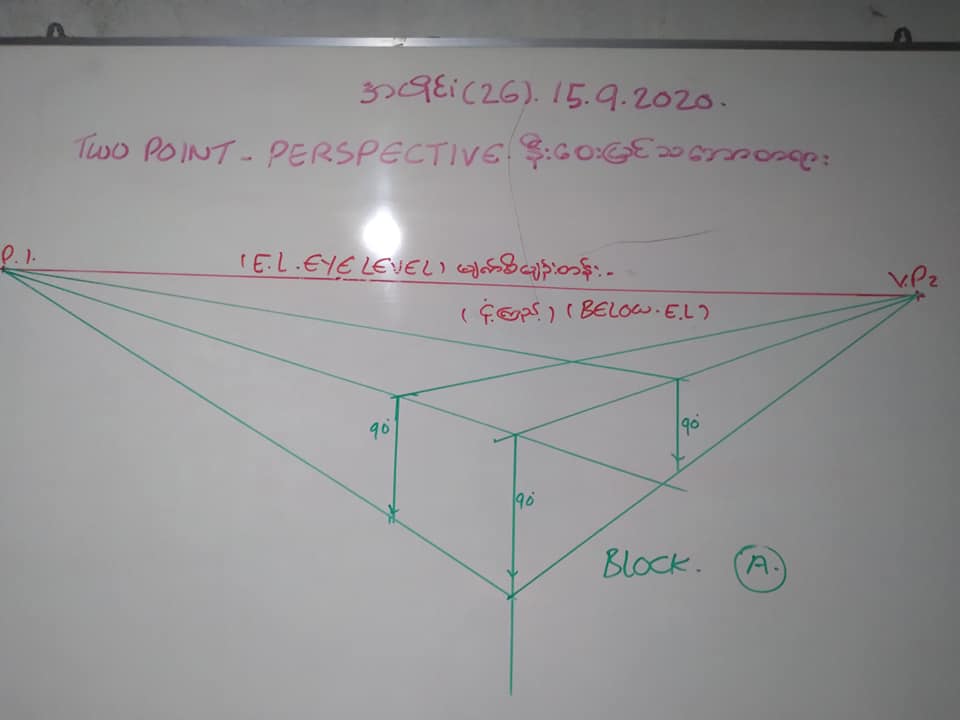 အပိုင်း(26). 15.9.2020.
TWO POINT - PERSPECTIVE. နီးဝေးမြင်သဘောတရား
P.1.
(E.L. EYE LEVEL) မျက်စိမျဉ်းတန်း..
V.P2
(ငုံ့ကြည့်) (BELOW. E.L)
90°
90°
90°
BLOCK. A.